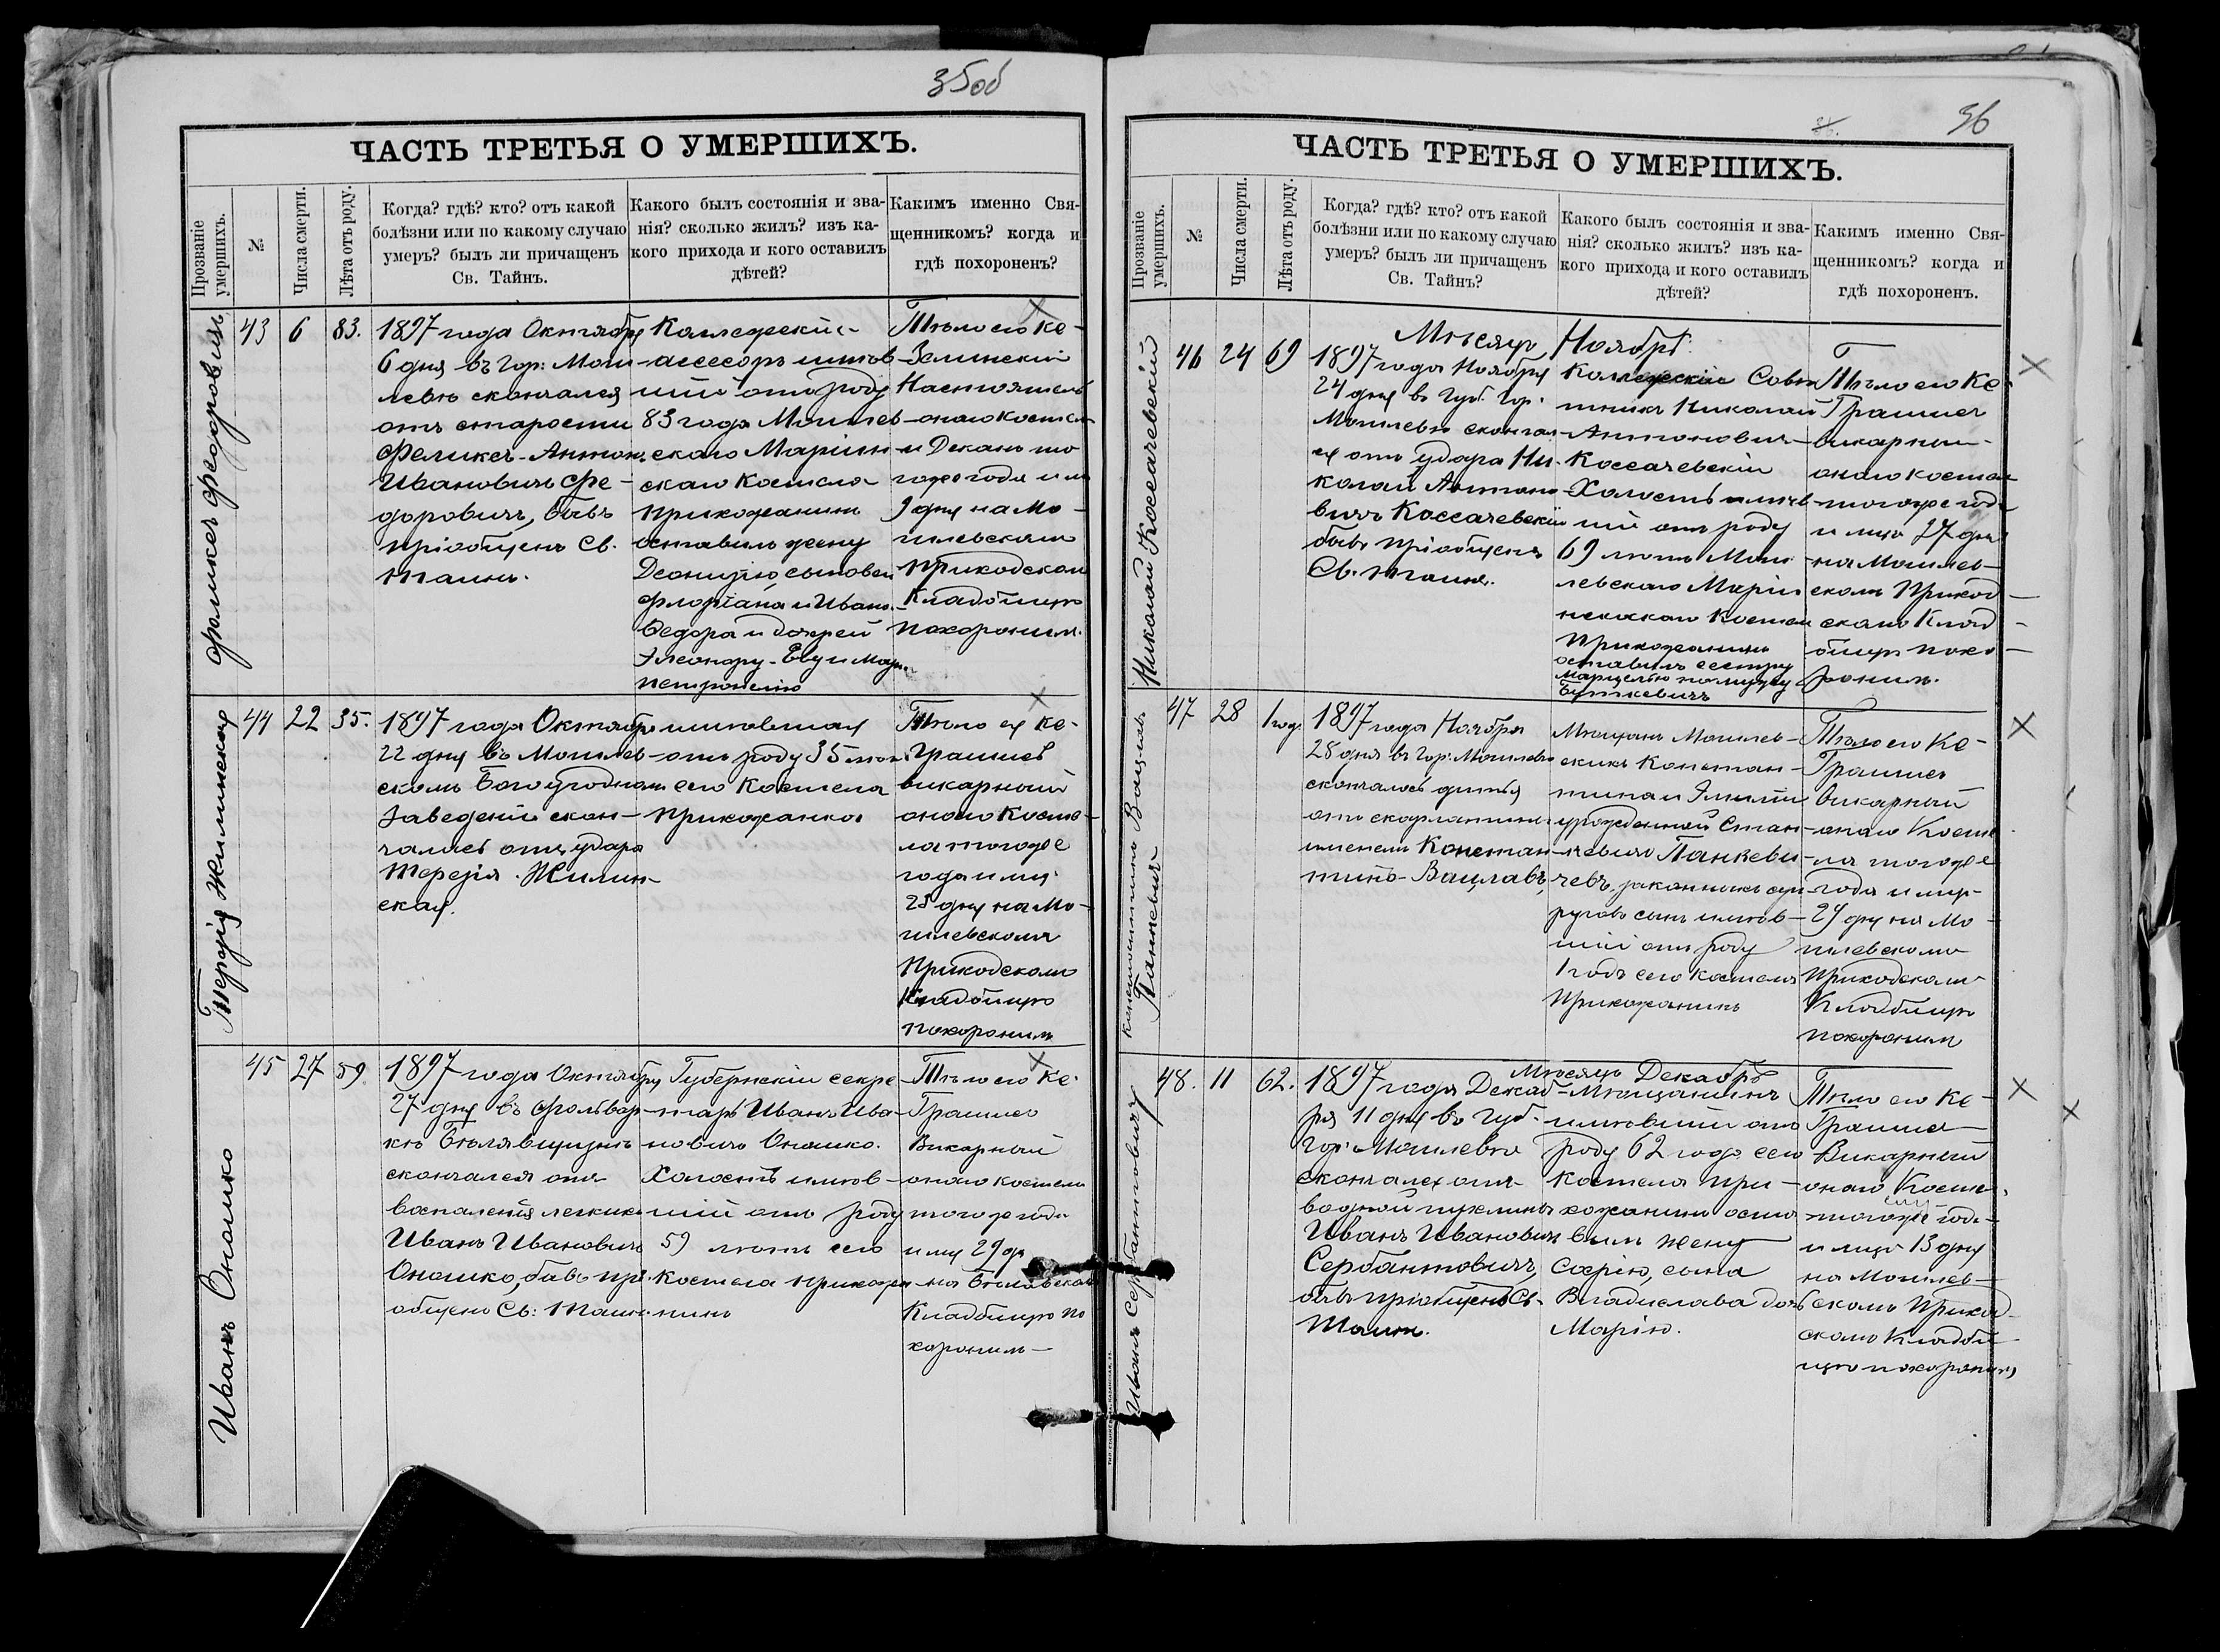 35об
ЧАСТЬ ТРЕТЬЯ О УМЕРШИХЪ.
Прозваніе умершихъ.
№
Числа смерти.
Лѣта отъ роду.
Когда? гдѣ? кто? отъ какой
болѣзни или по какому случаю
умеръ? былъ ли причащенъ
Св. Тайнъ.
Какого былъ состоянія и зва-
нія? сколько жилъ? изъ ка-
кого прихода и кого оставилъ
дѣтей?
Какимъ именно Свя-
щенникомъ? когда и
гдѣ похороненъ?
Феликсъ Федоровичъ
43
6
83.
1897 года Октября
6 дня въ гор: Моги
левѣ скончался
отъ старости
Феликсъ-Антонъ
Ивановичъ Фе-
доровичъ, бывъ
пріобщенъ Св.
Таинъ.
Коллежскій
ассесоръ имѣв
шій отъ роду
83 года Могилев
скаго Маріин
скаго Костела
прихожанинъ
оставилъ жену
Деонизію сыновей
Флоріана и Ивана
Ѳедора и дочерей
Элеонору-Еву и
Петронелію
Тѣло его Кс-
Зелинскій
Настоятель
онаго Костела
и Деканъ то
гоже года и м
9 дня на Мо-
гилевскомъ
Приходскомъ
Кладбищѣ
похоронилъ.
Терезія Жилинская
44
22
35.
1897 года Октября
22 дня въ Могилев
скомъ Богоугодномъ
Заведеніи скон-
чалась отъ удара
Терезія Жилин-
ская.
имѣвшая
отъ роду 35 лѣт.
сего Костела
прихожанка
Тѣло ея Кс-
Грашисъ
викарный
онаго Косте-
ла тогоже
года и мѣ.
25 дня на Мо-
гилевскомъ
Приходскомъ
Кладбищѣ
похоронилъ
Иванъ Оношко
45
27
59
1897 года Октября
27 дня въ фольвар
кѣ Бѣлявщизнѣ
скончался отъ
воспаленія легкихъ
Иванъ Ивановичъ
Оношко, бывъ прі
общенъ Св: Таинъ
Губернскій секре
тарь Иванъ Ива-
новичъ Оношко.
Холостъ имѣв-
шій отъ роду
59 лѣтъ сего
Костела прихожа
нинъ
Тѣло его Кс-
Грашисъ
Викарный
онаго костела
тогоже года
и мѣ 29 дн
на
Кладбищѣ по
хоронилъ-
36.
36
ЧАСТЬ ТРЕТЬЯ О УМЕРШИХЪ.
Прозваніе умершихъ.
№
Числа смерти.
Лѣта отъ роду.
Когда? гдѣ? кто? отъ какой
болѣзни или по какому случаю
умеръ? былъ ли причащенъ
Св. Тайнъ?
Какого былъ состоянія и зва-
нія? сколько жилъ? изъ ка-
кого прихода и кого оставилъ
дѣтей?
Какимъ именно Свя-
щенникомъ? когда и
гдѣ похороненъ.
Мѣсяцъ Ноябрь.
Николай Коссачевскій
46
24
69
1897 года Ноября
24 дня въ Губ. Гор.
Могилевѣ скончал-
ся отъ удара Ни-
колай Антоно-
вичъ Коссачевскій
бывъ пріобщенъ
Св. Таинъ.
Коллежскій Совѣ
тникъ Николай
Антоновичъ
Коссачевскій
Холостъ имѣв
шій отъ роду
69 лѣтъ Моги
левскаго Марі
инскаго Костела
прихожанинъ
оставилъ сестру
Марцелью по мужу
Буткевичъ
Тѣло его Кс
Грашисъ
викарный
онаго Костела
тогоже года
и мца 27 дня
на Могилев-
скомъ Приход-
скомъ Клад-
бищѣ похо-
ронилъ.
Константинъ Вацлавъ
Панкевичъ
47
28
1 год.
1897 года Ноября
28 дня въ гор. Могилевѣ
скончалось дитя
отъ скарлатины
именемъ Констан-
тинъ-Вацлавъ,
Мѣщанъ Могилев-
скихъ Констан-
тина и Эмиліи
урожденной Стан-
кевичъ Панкеви-
чевъ, законныхъ суп
руговъ сынъ имѣв-
шій отъ роду
1 годъ сего Костела
прихожанинъ
Тѣло его Кс-
Грашисъ
Викарный
онаго Косте
ла тогоже
года и мца
29 дня на Мо-
гилевскомъ
Приходскомъ
Кладбищѣ
похоронилъ
Мѣсяцъ Декабрь
Иванъ Сербантовичъ
48.
11
62.
1897 года Декаб-
ря 11 дня въ Губ.
гор. Могилевѣ
скончался отъ
водной пухлины
Иванъ Ивановичъ
Сербантовичъ,
бывъ пріобщенъ Св.
Таинъ.
Мѣщанинъ
имѣвшій отъ
роду 62 года сего
Костела при-
хожанинъ оста
вилъ жену
Софію, сына
Владислава дочь
Марію.
Тѣло его Кс-
Грашисъ
Викарный
онаго Костела
тогоже года
и мца 13 дня
на Могилев-
скомъ Приход
скомъ Кладби-
щѣ похоронилъ